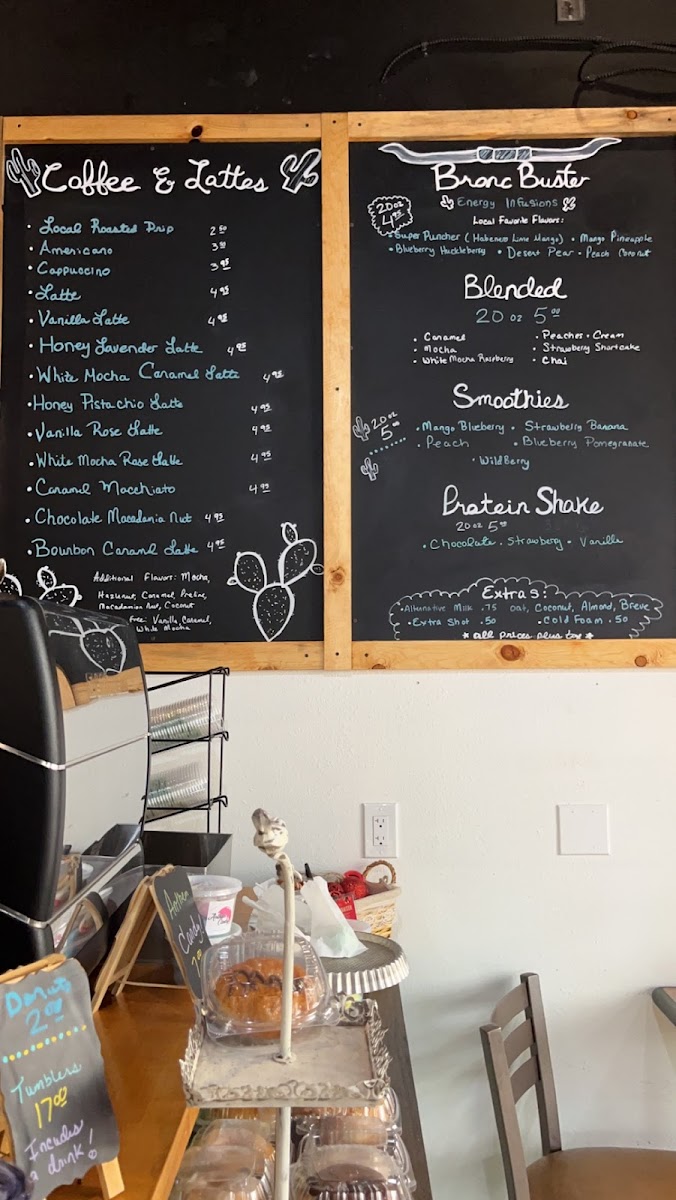 Coffee & Lattes
• Local Roasted Drip 2 50
• Americano 3 50
• Cappuccino 3 95
• Latte 4 95
• Vanilla Latte 4 95
• Honey Lavender Latte 4 95
• White Mocha Caramel Latte 4 95
• Honey Pistachio Latte 4 95
• Vanilla Rose Latte 4 95
• White Mocha Rose Latte 4 95
• Caramel Macchiato 4 95
• Chocolate Macadamia Nut 4 95
• Bourbon Caramel Latte 4 95
Additional Flavors: Mocha,
Hazelnut, Caramel, Praline,
Macadamian Nut, Coconut
Free: Vanilla, Caramel,
White Mocha
Bronc Buster
Energy Infusions
20 oz
4 95
Local Favorite Flavors:
• Super Puncher (Habenero Lime Mango) • Mango Pineapple
• Blueberry Huckleberry • Desert Pear • Peach Coconut
Blended
20 oz 5 00
• Caramel • Peaches & Cream
• Mocha • Strawberry Shortcake
• White Mocha Raspberry • Chai
Smoothies
20 oz
5 00
• Mango Blueberry • Strawberry Banana
• Peach • Blueberry Pomegranate
• WildBerry
Protein Shake
20 oz 5 00
• Chocolate • Strawberry • Vanilla
Extras:
• Alternative Milk .75 Oat, Coconut, Almond, Breve
• Extra Shot .50 • Cold Foam .50
* all prices plus tax *
Cotton
Candy
Donuts
2.00
Tumblers
17 00
Includes
a drink!